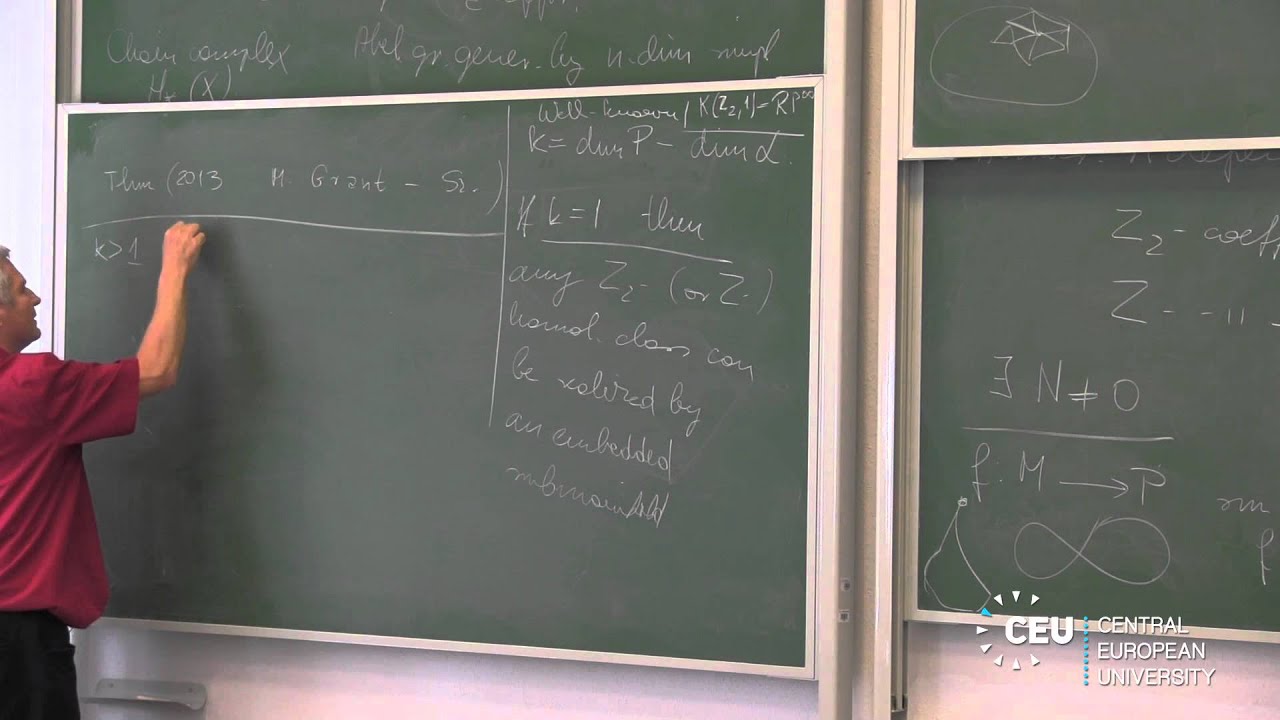 Chain complex Abel gr. gener. by n. dim simpl
H_*(X)
Thm (2013 M. Grant - Sz.)
k>1
Well-known / K(Z_2,1) = RP^∞
k = dim P - dim α.
If k = 1 then
any Z_2- (or Z-)
homol. class can
be realized by
an embedded
submanifold
Z_2 - coeff
Z - - "
∃ N ≠ 0
f: M → P
f
CEU
CENTRAL
EUROPEAN
UNIVERSITY